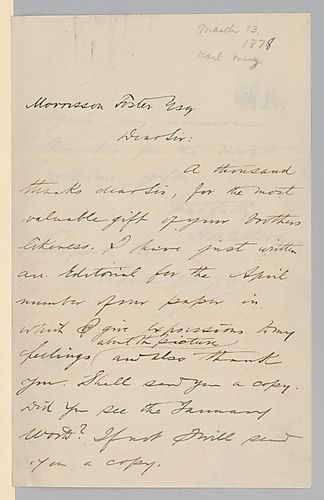 March 13,
1878
Karl Merz
Morrisson Foster Esq
Dear Sir:
A thousand
thanks dear Sir, for the most
valuable gift of your brothers
likeness. I have just written
an Editorial for the April
number of our paper in
which I give expressions to my
about the picture
feelings and also thank
you. Shall send you a copy.
Did you see the January
World? If not I will send
you a copy.